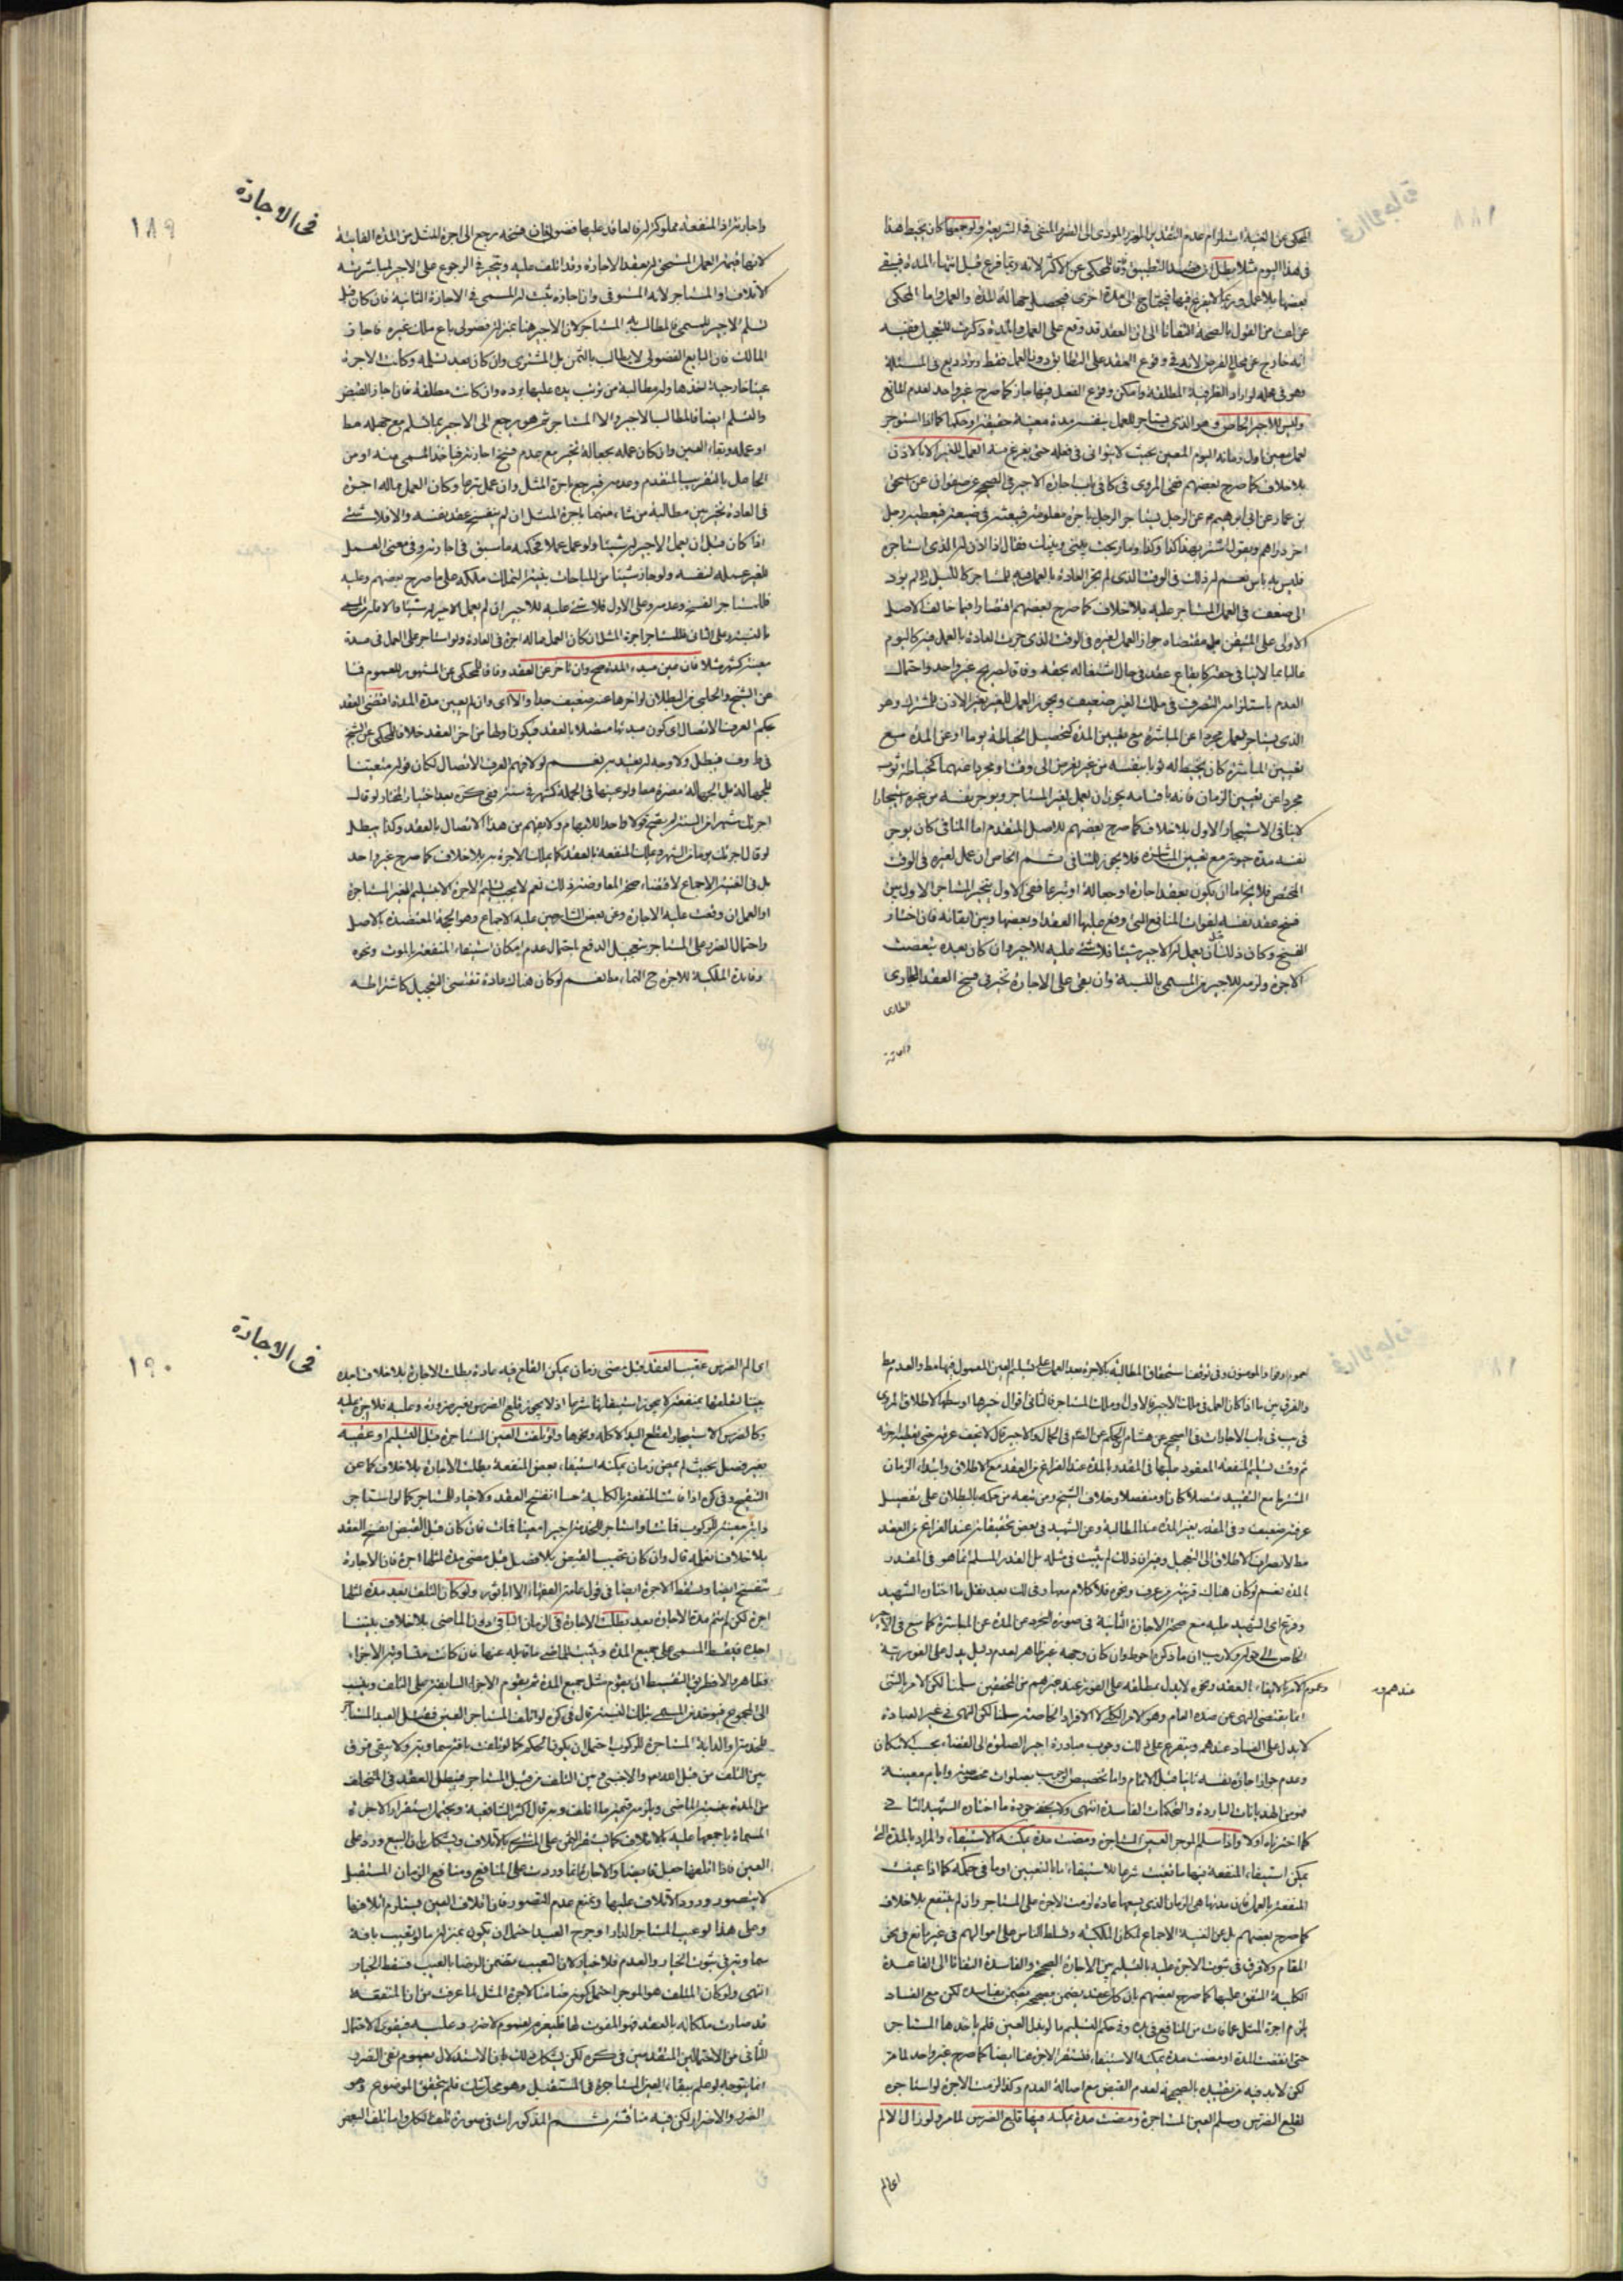 في الاجارة
١٨٩
في هذا اليوم مثلا بطل
بعضها بلا عمل وربما لا يفرغ فيها فيحتاج الى مدة اخرى فيحصل جهالة المدة والعمل واما المحكى
انه خارج عن محل الفرض لانه في وقوع العقد على التطابق دون العمل فقط
وهو في محله لو اراد الظرفية المطلقة وامكن وقوع الفعل فيها جاز كما صرح غير واحد لعدم المانع
وليس للاجير الخاص وهو الذي يستاجر للعمل بنفسه مدة معينة حقيقة او حكما كما اذا استوجر
لعمل معين اول زمانه اليوم المعين بحيث لا يتوانى في فعله حتى يفرغ منه العمل للغير الا بالاذن
بلا خلاف كما صرح بعضهم ففي المروى في كا في باب اجارة الاجير في الصحيح عن صفوان عن اسحق
بن عمار عن ابى ابرهيم عن الرجل يستاجر الرجل باجرة معلومة فيبعثه في ضيعته فيعطيه رجل
اخر دراهم ويقول اشتر بهذا كذا وكذا وما ربحت بينى وبينك فقال اذا اذن له الذى استاجره
فليس به باس نعم له ذلك في الوقت الذى لم تجر العادة بالعمل فيه للمستاجر كالليل اذا لم يؤد
الى ضعف في العمل المستاجر عليه بلا خلاف كما صرح بعضهم اقتصارا فيما خالف الاصل
العدم باستلزامه التصرف في ملك الغير ضعيف ويجوز العمل للغير بغير الاذن للمشترك وهو
الذى يستاجر لعمل مجرد عن المباشرة مع تعيين المدة كتحصيل الخياطة يوما او عن المدة مع
تعيين المباشرة كان يخيط له ثوبا بنفسه من غير تعرض الى وقت او مجرد عنهما كخياطة ثوب
مجردا عن تعيين الزمان فانه باقسامه يجوز ان يعمل لغير المستاجر ويوجر نفسه من غيره استيجارا
لا ينافى الاستيجار الاول بلا خلاف كما صرح بعضهم للاصل المتقدم اما المنافى كان يوجر
نفسه مدة حيوته مع تعيين المباشرة فلا يجوز للتنافى ثم الخاص ان عمل لغيره في الوقت
المختص فلا يخ اما ان يكون بعقد اجارة او جعالة او تبرعا ففى الاول يتخير المستاجر الاول بين
فسخ عقد نفسه لفوات المنافع التى وقع عليها العقد او بعضها وبين ابقائه فان اختار
الفسخ وكان ذلك قبل ان يعمل له الاجير شيئا فلا شئ عليه للاجير وان كان بعده تبعضت
الاجرة ولزمه للاجير من المسمى بالنسبة وان بقى على الاجارة تخير في فسخ العقد الطارى
الطارى
واجازته اذ المنفعة مملوكة له فالعاقد عليها فضولى فان فسخه رجع الى اجرة المثل عن المدة الفائتة
لانها قيمة العمل المستحق له بعقد الاجارة وقد اتلف عليه ويتخير في الرجوع على الاجير لمباشرته
الاتلاف او المستاجر لانه المستوفى وان اجازه ثبت له المسمى في الاجارة الثانية فان كان قبل
تسلم الاجير المسمى فالمطالب به المستاجر لان الاجير هنا بمنزلة فضولى باع ملك غيره فاجاز
المالك فان البايع الفضولى لا يطالب بالثمن بل المشترى وان كان بعد تسلمه وكانت الاجرة
عينا خارجية اخذها وله مطالبة من ترتب يده عليها برده وان كانت مطلقة فان اجاز القبض
والتسلم ايضا فالمطالب الاجير والا المستاجر ثم هو يرجع الى الاجير بما تسلم مع جهله مط
او علمه وبقاء العين وان كان عمله بجعالة تخير مع عدم فسخ اجارته فياخذ المسمى منه او من
الجاعل بالتقريب المتقدم وعدمه فيرجع باجرة المثل وان عمل تبرعا وكان العمل مما له اجرة
في العادة تخير بين مطالبة من شاء منهما باجرة المثل ان لم ينفسخ عقد نفسه والا فلا شئ
للغير عمله لنفسه ولو حاز شيئا من المباحات بنية التملك ملكه على ما صرح بعضهم وعليه
فللمستاجر الفسخ وعدمه وعلى الاول فلا شئ عليه للاجير ان لم يعمل الاجير له شيئا والا فله من المسمى
بالنسبة وعلى الثانى فللمستاجر اجرة المثل ان كان العمل مما له اجرة في العادة ولو استاجره على العمل في مدة
معينة كشهر مثلا فان عين مبدء المدة صح وان تاخر عن العقد وفاقا للمحكى عن المشهور للعموم فما
عن الشيخ والحلبى من البطلان لو اخرها عنه ضعيف جدا والا اى وان لم يعين مدة المدة اقتضى العقد
بحكم العرف الاتصال اى كون مبدئها متصلا بالعقد فيكون اولها من اخر العقد خلافا للمحكى عن الشيخ
اجرتك شهرا من السنة لم يصح قولا واحدا للابهام ولا يفهم من هذا الاتصال بالعقد وكذا يبطل
لو قال اجرتك يوما من الشهر ويملك المنفعة بالعقد كما يملك الاجرة به بلا خلاف كما صرح غير واحد
بل في الغنية الاجماع لاقتضاء صحة المعاوضة ذلك نعم لا يجب تسليم الاجرة الا بتسليم العين المستاجرة
او العمل ان وقعت عليه الاجارة وعن بعض الشارحين عليه الاجماع وهو الحجة المعتضدة بالاصل
واحتمال الضرر على المستاجر بتعجيل الدفع لاحتمال عدم امكان استيفاء المنفعة بالموت ونحوه
وفائدة الملكية للاجرة ح النماء مط نعم لو كان هناك عادة تقتضى التعجيل كاشتراطه
في الاجارة
١٩٠
والفرق بين ما اذا كان العمل في ملك الاجير فالاول وملك المستاجر فالثانى اقوال خيرها اوسطها لاطلاق المروى
في يب في باب الاجارات في الصحيح عن هشام بن الحكم عن الصادق في الجمال والاجير قال لا يجف عرقه حتى تعطيه اجرته
ثم وقت تسليم المنفعة المعقود عليها في المقدر بالمدة عند الفراغ من العقد مع الاطلاق وابتداء الزمان
المشترط مع التقييد متصلا كان او منفصلا وخلاف الشيخ ومن تبعه من حكمه بالبطلان على تفصيل
عرفته ضعيف وفي المقدر بغير المدة عند المطالبة وعن الشهيد في بعض تحقيقاته عند الفراغ من العقد
مط لانصراف الاطلاق الى التعجيل وفيه ان ذلك لم يثبت في مثله بل القدر المسلم انما هو في المقدر
بالمدة نعم لو كان هناك قرينة من عرف ونحوه فلا كلام معها
وفرع اى الشهيد عليه منع صحة الاجارة الثانية في صورة التجرد عن المدة عن المباشرة كما منع في الاجير
الخاص
وعموم الامر بالايفاء بالعقد ونحوه لا يدل بمطلقه على الفور عند غيرهم من المحققين سلمنا لكن الامر بالشئ
عندهم و
انما يقتضى النهى عن ضده العام وهو الامر الكلى لا الافراد الخاصة سلمنا لكن النهى في غير العبادة
لا يدل على الفساد عندهم ويتفرع على ذلك وجوب مبادرة اجير الصلوة الى القضاء بحسب الامكان
وعدم جواز اجارة نفسه ثانيا قبل الاتمام واما تخصيص الوجوب بصلوات مخصوصة وايام معينة
فهو من الهذيانات الباردة والتحكمات الفاسدة انتهى ولا يخفى جودة ما اختاره الشهيد الثانى
كما اخترناه اولا واذا سلم الموجر العين المستاجرة ومضت مدة يمكنه الاستيفاء والمراد بالمدة التى
يمكن استيفاء المنفعة فيها ما تعينت شرعا للاستيفاء اما بالتعيين او ما في حكمه كما اذا عينت
المنفعة بالعمل فان مدتها هي الزمان الذى يسعها عادة لزمت الاجرة على المستاجر وان لم ينتفع بلا خلاف
كما صرح بعضهم بل عن الغنية الاجماع لمكان الملكية وتسلط الناس على اموالهم في غير مانع في نحو
المقام ولا فرق في ثبوت الاجرة عليه بالتسليم بين الاجارة الصحيحة والفاسدة التفاتا الى القاعدة
الكلية المتفق عليها كما صرح بعضهم بان كل عقد يضمن بصحيحه يضمن بفاسده لكن مع الفساد
يلزم اجرة المثل عما فات من المنافع في يده وفي حكم التسليم ما لو بذل العين فلم ياخذها المستاجر
حتى انقضت المدة او مضت مدة يمكنه الاستيفاء فتستقر الاجرة عنا ايضا كما صرح غير واحد لما مر
لكن لا بد فيه من تقييده بالصحيحة لعدم القبض مع اصالة العدم وكذا لزمت الاجرة لو استاجره
لقلع الضرس وسلم العين المستاجرة ومضت مدة يمكنه فيها قلع الضرس لما مر ولو زال الالم
اى الم
اى الم الضرس عقيب العقد قبل مضى زمان يمكن القلع فيه عادة بطلت الاجارة بلا خلاف اجده
بيننا لتعلقها بمنفعة لا يجوز استيفاؤها شرعا اذ لا يجوز قلع الضرس بغير ضرورة وعليه فلا اجرة عليه
وكالضرس الاستيجار لقطع اليد لاكلة ونحوها ولو تلفت العين المستاجرة قبل التسليم او عقيبه
بغير فصل بحيث لم يمض زمان يمكنه استيفاء بعض المنفعة بطلت الاجارة بلا خلاف كما عن
التنقيح وفي كره اذا فاتت المنفعة بالكلية حسا انفسخ العقد ولا خيار للمستاجر كما لو استاجر
دابة معينة للركوب فماتت او استاجر للخدمة اجيرا معينا فمات فان كان قبل القبض انفسخ العقد
بلا خلاف نعلمه قال وان كان عقيب القبض بلا فصل قبل مضى مدة لمثلها اجرة فان الاجارة
تنفسخ ايضا وتسقط الاجرة ايضا في قول عامة الفقهاء الا ابا ثور ولو كان التلف بعد مدة لمثلها
اجرة لكن لم تتم مدة الاجارة بعد بطلت الاجارة في الزمان الباقى دون الماضى بلا خلاف بيننا
اجده فيقسط المسمى على جميع المدة ويثبت للماضى ما قابله عنها فان كانت متساوية الاجزاء
فظاهر والا فطريق التقسيط ان يقوم مثل جميع المدة ثم يقوم الاجزاء السابقة على التلف وينسب
الى المجموع فيوخذ من المسمى بتلك النسبة قال في كره لو اتلف المستاجر العين فقتل العبد المستاجر
للخدمة او الدابة المستاجرة للركوب احتمل ان يكون الحكم كما لو تلفت بافة سماوية ولا يبقى فرق
بين التلف من قبل الله تعالى والاجنبى وبين التلف من قبل المستاجر فيبطل العقد في المتخلف
من المدة حسب الماضى ويلزمه قيمة ما اتلف وبه قال اكثر الشافعية ويحتمل استقرار الاجرة
المسماة باجمعها عليه بالاتلاف كما يستقر الثمن على المشترى بالاتلاف ويشكل بان البيع ورد على
العين فاذا اتلفها جعل قابضا والاجارة انما وردت على المنافع ومنافع الزمان المستقبل
لا يتصور ورود الاتلاف عليها ونمنع عدم التصور فان اتلاف العين يستلزم اتلافها
وعلى هذا لو عيب المستاجر الدار او جرح العبد احتمل ان يكون بمنزلة ما لو تعيب بافة
سماوية في ثبوت الخيار والعدم فلا خيار لان التعييب يتضمن الرضا بالعيب فسقط الخيار
انتهى ولو كان المتلف هو الموجر احتمل كونه ضامنا لاجرة المثل لما عرفت من ان المنفعة
قد صارت ملكا له بالعقد فهو المفوت لها فليغرم لعموم لا ضرر وعليه فيقوى الاحتمال
الثانى من الاحتمالين المتقدمين في كره لكن يشكل ذلك بان الاستدلال بعموم نفى الضرر
انما يتوجه لو علم ببقاء العين المستاجرة في المستقبل وهو محل شك فلم يتحقق الموضوع وهو
الضرر والاضرار لكن فيه مناقشة ثم المذكورات في صورة تلف الكل واما تلف البعض